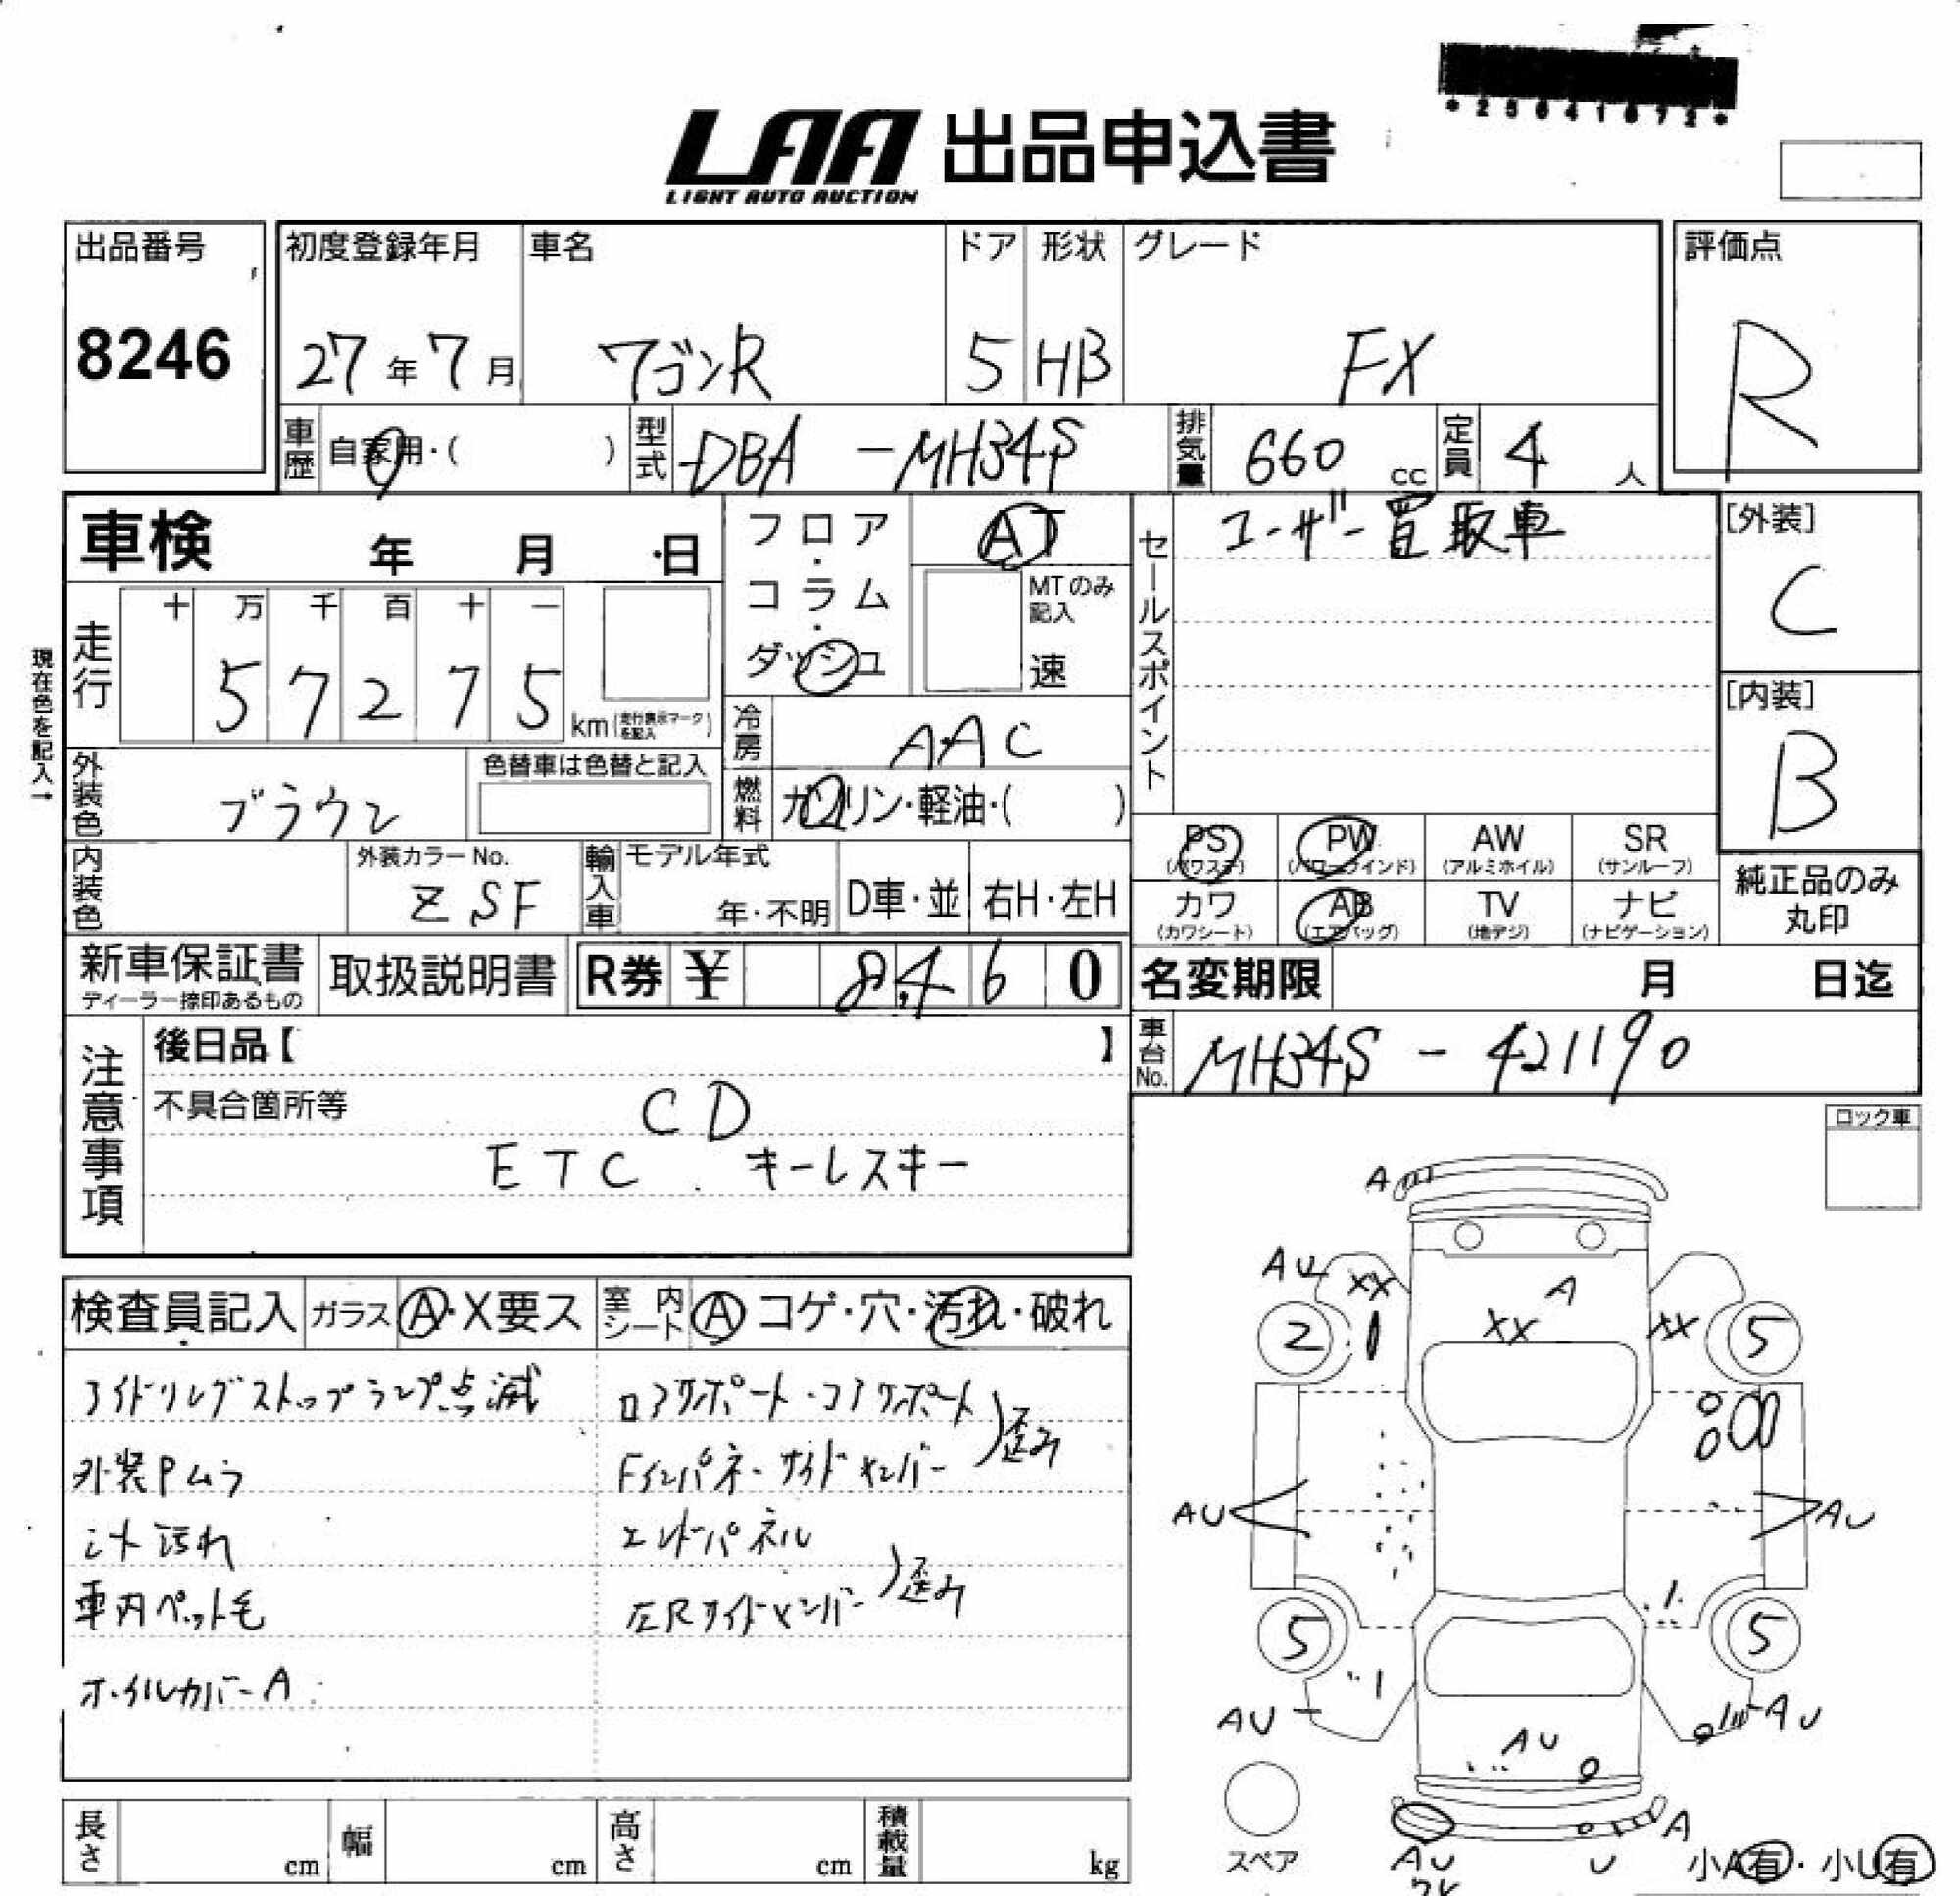 *25641672*
LAA 出品申込書
LIGHT AUTO AUCTION
出品番号
8246
初度登録年月
27年7月
車名
ワゴンR
ドア
5
形状
HB
グレード
FX
評価点
R
車歴 自家用・( )
型式 DBA-MH34S
排気量 660 cc
定員 4 人
車検 年 月 日
フロア・コラム・ダッシュ
AT
MTのみ記入
速
セールスポイント
ユーザー買取車
[外装]
C
[内装]
B
現在色を記入→
走行
十 万 千 百 十 一
5 7 2 7 5 km (走行表示マークを記入)
冷房 AAC
外装色 ブラウン
色替車は色替と記入
燃料 ガソリン・軽油・( )
PS (パワステ)
PW (パワーウインド)
AW (アルミホイル)
SR (サンルーフ)
カワ (カワシート)
AB (エアバッグ)
TV (地デジ)
ナビ (ナビゲーション)
純正品のみ丸印
内装色
外装カラーNo.
ZSF
輸入車
モデル年式
年・不明
D車・並
右H・左H
新車保証書
ディーラー捺印あるもの
取扱説明書
R券 ¥ 8,460
名変期限 月 日迄
車台No. MH34S-421190
注意事項
後日品【 】
不具合箇所等
CD
ETC キーレスキー
ロック車
検査員記入
ガラス A・X要ス
室内シート A コゲ・穴・汚れ・破れ
アイドリングストップランプ点滅
外装Pムラ
シート汚れ
車内ペット毛
ホイルカバーA
ロアサポート・コアサポート
Fインパネ・サイドメンバー
歪み
エンドパネル
左Rサイドメンバー
歪み
A
AU XX
A
XX
XX
2
5
AU
AU
5
5
AU
AU
AU
A
AU
U
スペア
小A有・小U有
長さ cm
幅 cm
高さ cm
積載量 kg